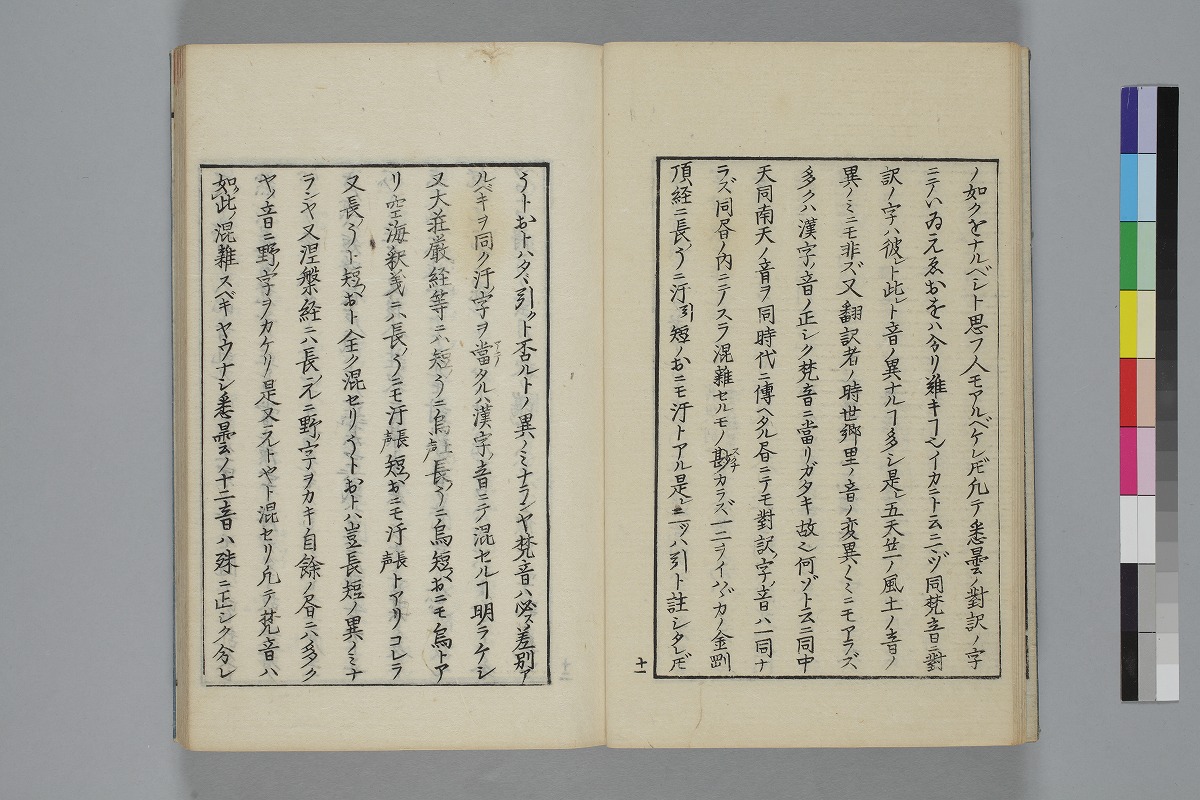 ノ如クをナルベシト思フ人モアルベケレ𪜈凡テ悉曇ノ對訳ノ字
ニテハいゐえゑおをハ分リ難キヿ也イカニト云ニマヅ同梵音ニ對
訳ノ字ハ彼ト此ト音ノ異ナルヿ多シ是ハ五天竺ノ風土ノ音ノ
異ノミニモ非ズ又翻訳者ノ時世郷里ノ音ノ変異ノミニモアラズ
多クハ漢字音ノ正シク梵音ニ當リガタキ故也何ゾト云ニ同中
天同南天ノ音ヲ同時代ニ傳ヘタル昏ニテモ對訳字ノ音ハ一同ナ
ラズ同昏ノ内ニテスラ混雜セルモノ尠カラズ一二ヲイハヾカノ金剛
頂経ニ長ノうニ汙引短ノおニモ汙トアル是ハ一ツハ引ト註シタレ𪜈
十一
うトおトハタヾ引クト否ルトノ異ノミナランヤ梵音ハ必ズ差別ア
ルベキヲ同ク汙字ヲ當タルハ漢字ノ音ニテ混セルヿ明ラケシ
又大荘厳経等ニハ短ノうニ烏上声長ノうニ烏短ノおニモ烏トア
リ空海釈義ニハ長ノうニモ汙長声短ノおニモ汙長声トアリコレラ
又長ノうト短ノおト全ク混セリうトおトハ豈長短ノ異ノミナ
ランヤ又涅槃経ニハ長ノえニ野字ヲカキ自餘ノ昏ニハ多ク
ヤノ音ニ野ノ字ヲカケリ是又えトやト混セリ凡テ梵音ハ
如此ノ混雜スベキヤウナシ悉曇ノ十二音ハ殊ニ正シク分レ